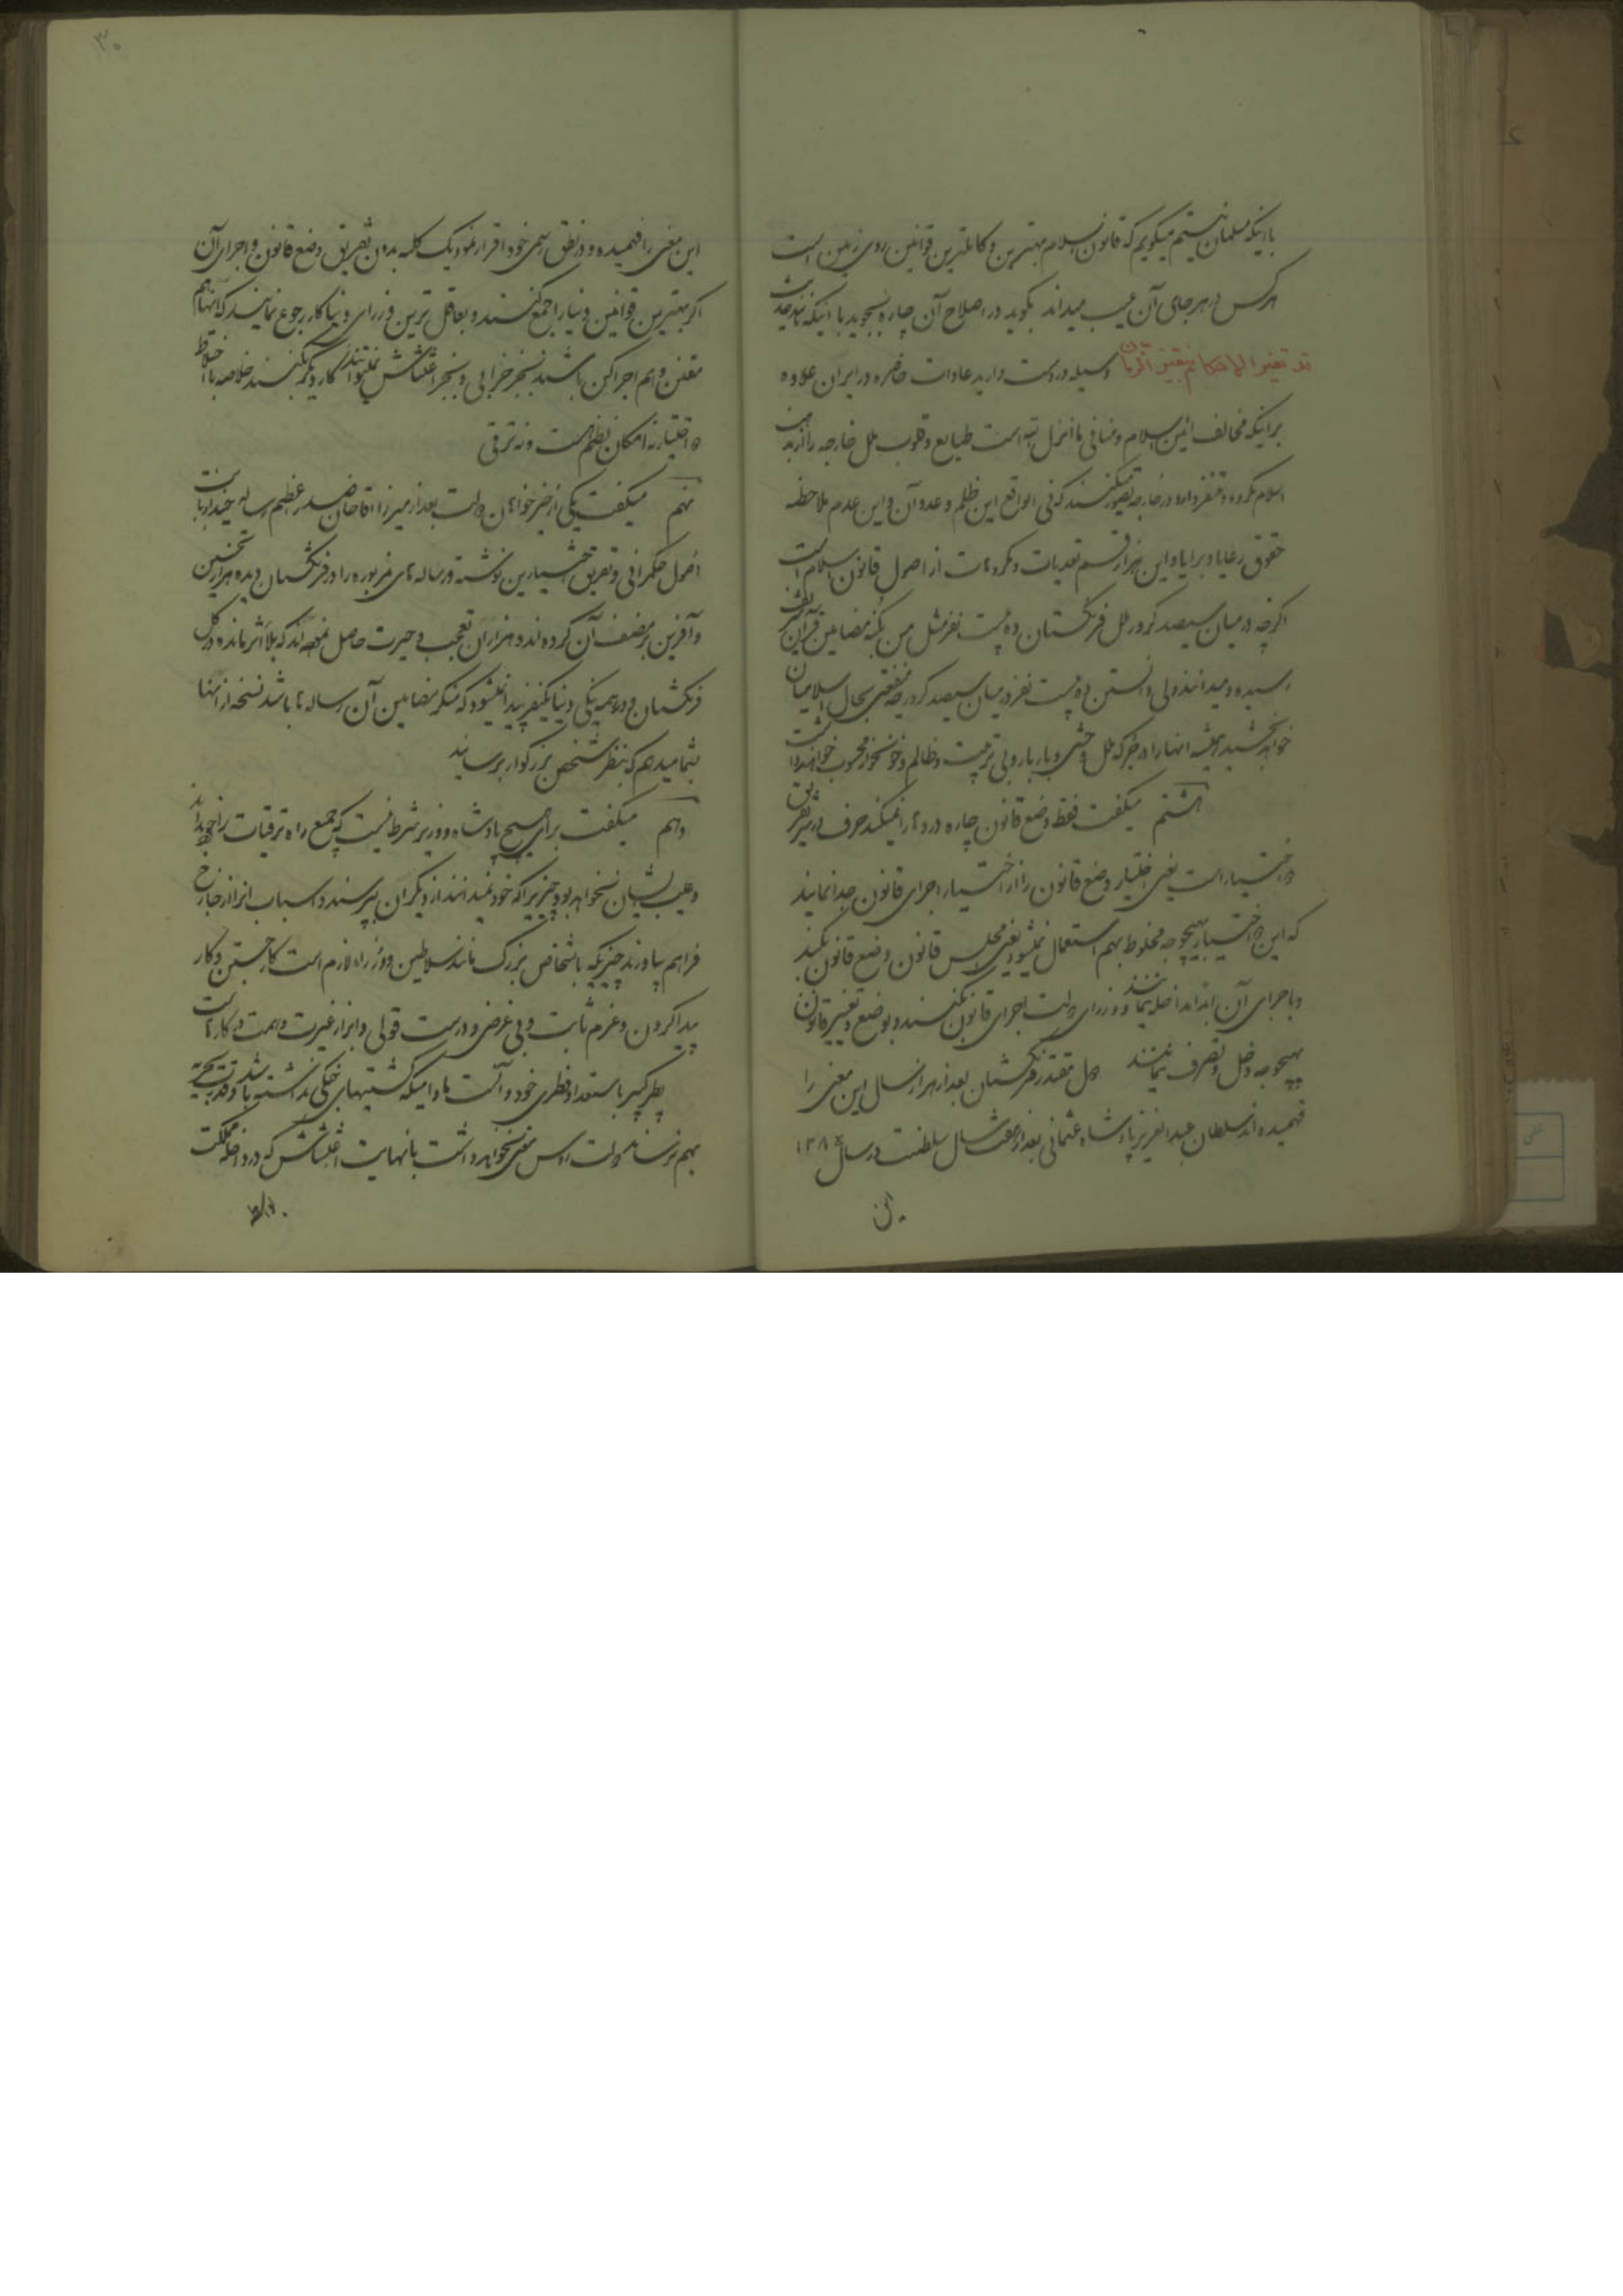 با اینکه مسلمان نیستم میگویم که قانون اسلام بهترین و کاملترین قوانین روی زمین است
هر کس در هر جای آن عیب میداند بگوید در اصلاح آن چاره بجوید با اینکه مانند حدیث
قد تغیر الاحکام بتغیر الازمان وسیله در دست دارید عادات حاضره در ایران علاوه
بر اینکه مخالف آئین اسلام و منافی ما انزل الله است طبایع و قلوب ملل خارجه را از دین مبین
اسلام مکروه و متنفر دارد در خارجه تصور میکنند که فی الواقع این ظلم و عدوان و این عدم ملاحظه
حقوق رعایا و برایا و این هزار قسم تعدیات و مکروهات از اصول قانون اسلام است
اگرچه در میان سیصد کرور ملل فرنگستان ده بیست نفر مثل من بکنه مضامین قرآن شریف
رسیده و میدانند ولی دانستن ده بیست نفر در میان سیصد کرور چه منفعتی بحال اسلامیان
خواهد بخشید همیشه آنها را در جرگه ملل وحشی و باربار و بی تربیت و ظالم و خونخوار محسوب خواهند داشت
هشتم میگفت فقط وضع قانون چاره دردها را نمیکند حرف در سر تفریق
دو اختیار است یعنی اختیار وضع قانون را از اختیار اجرای قانون جدا نمایند
که این دو اختیار بهیچوجه مخلوط بهم استعمال نمیشود یعنی مجلس قانون وضع قانون بکند
و باجرای آن ابدا مداخله ننمایند و وزرای دولت اجرای قانون بکنند و بوضع و تغییر قانون
بهیچوجه دخل و تصرف ننمایند دول مقتدر فرنگستان بعد از هزار سال این معنی را
فهمیده اند سلطان عبدالعزیز پادشاه عثمانی بعد از هفت سال سلطنت در سال ۱۲۸۴
این
۳۰
این معنی را فهمیده و در نطق رسمی خود اقرار نمود یک کلمه بدون تفریق وضع قانون و اجرای آن
اگر بهترین قوانین دنیا را جمع کنند و بعاقل ترین وزرای دنیا کار رجوع نمایند که آنها هم
مقنن و هم اجرا کن باشند بجز خرابی و بجز اغتشاش نمیتوانند کار دیگر بکنند خلاصه با اختلاط
دو اختیار نه امکان نظم است و نه ترقی
نهم میگفت یکی از خیرخواهان دولت بعد از میرزا آقاخان صدر اعظم رساله چند در باب
اصول حکمرانی و تفریق اختیارین نوشته و رساله های مزبوره را در فرنگستان دیده هزار تحسین
و آفرین بر مصنف آن کرده اند و هزاران تعجب و حیرت حاصل نموده اند که بلا اثر مانده در کل
فرنگستان و در همه ینگی دنیا یکنفر پیدا نمیشود که منکر مضامین آن رساله ها باشد نسخه از آنها
بشما میدهم که بنظر شخص بزرگوار برسانید
دهم میگفت برای هیچ پادشاه و وزیر شرط نیست که جمیع راه ترقیات را خود بداند
و عیب ایشان نخواهد بود چیزیرا که خود نمیدانند از دیگران بپرسند و اسباب آنرا از خارج
فراهم بیاورند چیزیکه باشخاص بزرگ مانند سلاطین و وزراء لازم است کارجستن و کار
پیدا کردن و عزم ثابت و بی غرضی و درست قولی و ابراز غیرت و همت در کارهاست
پطر کبیر با استعداد فطری خود دانست مادامیکه کشتیهای جنگی نداشته باشد و قدرت بحریه
بهم نرساند دولت روس معنی نخواهد داشت با نهایت اغتشاش که در داخله مملکت